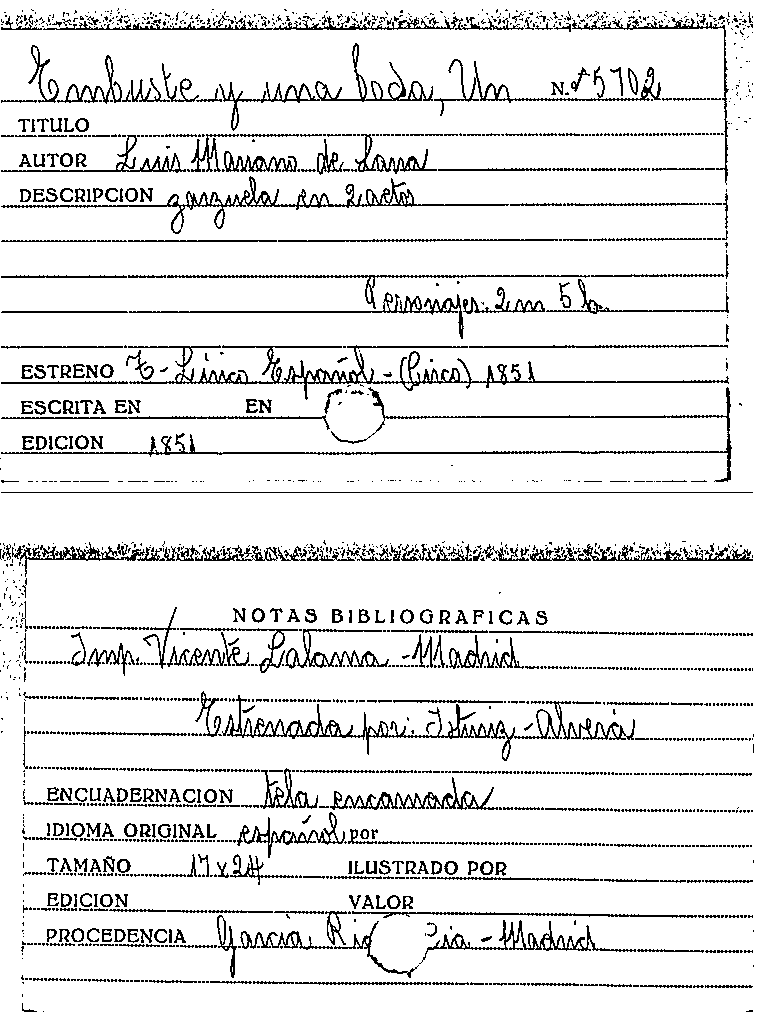 Embuste y una boda, Un N.º 5702
TITULO
AUTOR Luis Mariano de Lara
DESCRIPCION zarzuela en 2 actos
Personajes: 2 m 5 h.
ESTRENO T- Lírico Español - (Circo) 1851
ESCRITA EN EN
EDICION 1851
NOTAS BIBLIOGRAFICAS
Imp. Vicente Lalama - Madrid
Estrenada por: Isturiz - Alverá
ENCUADERNACION tela encarnada
IDIOMA ORIGINAL español por
TAMAÑO 17 x 24 ILUSTRADO POR
EDICION VALOR
PROCEDENCIA García - Madrid